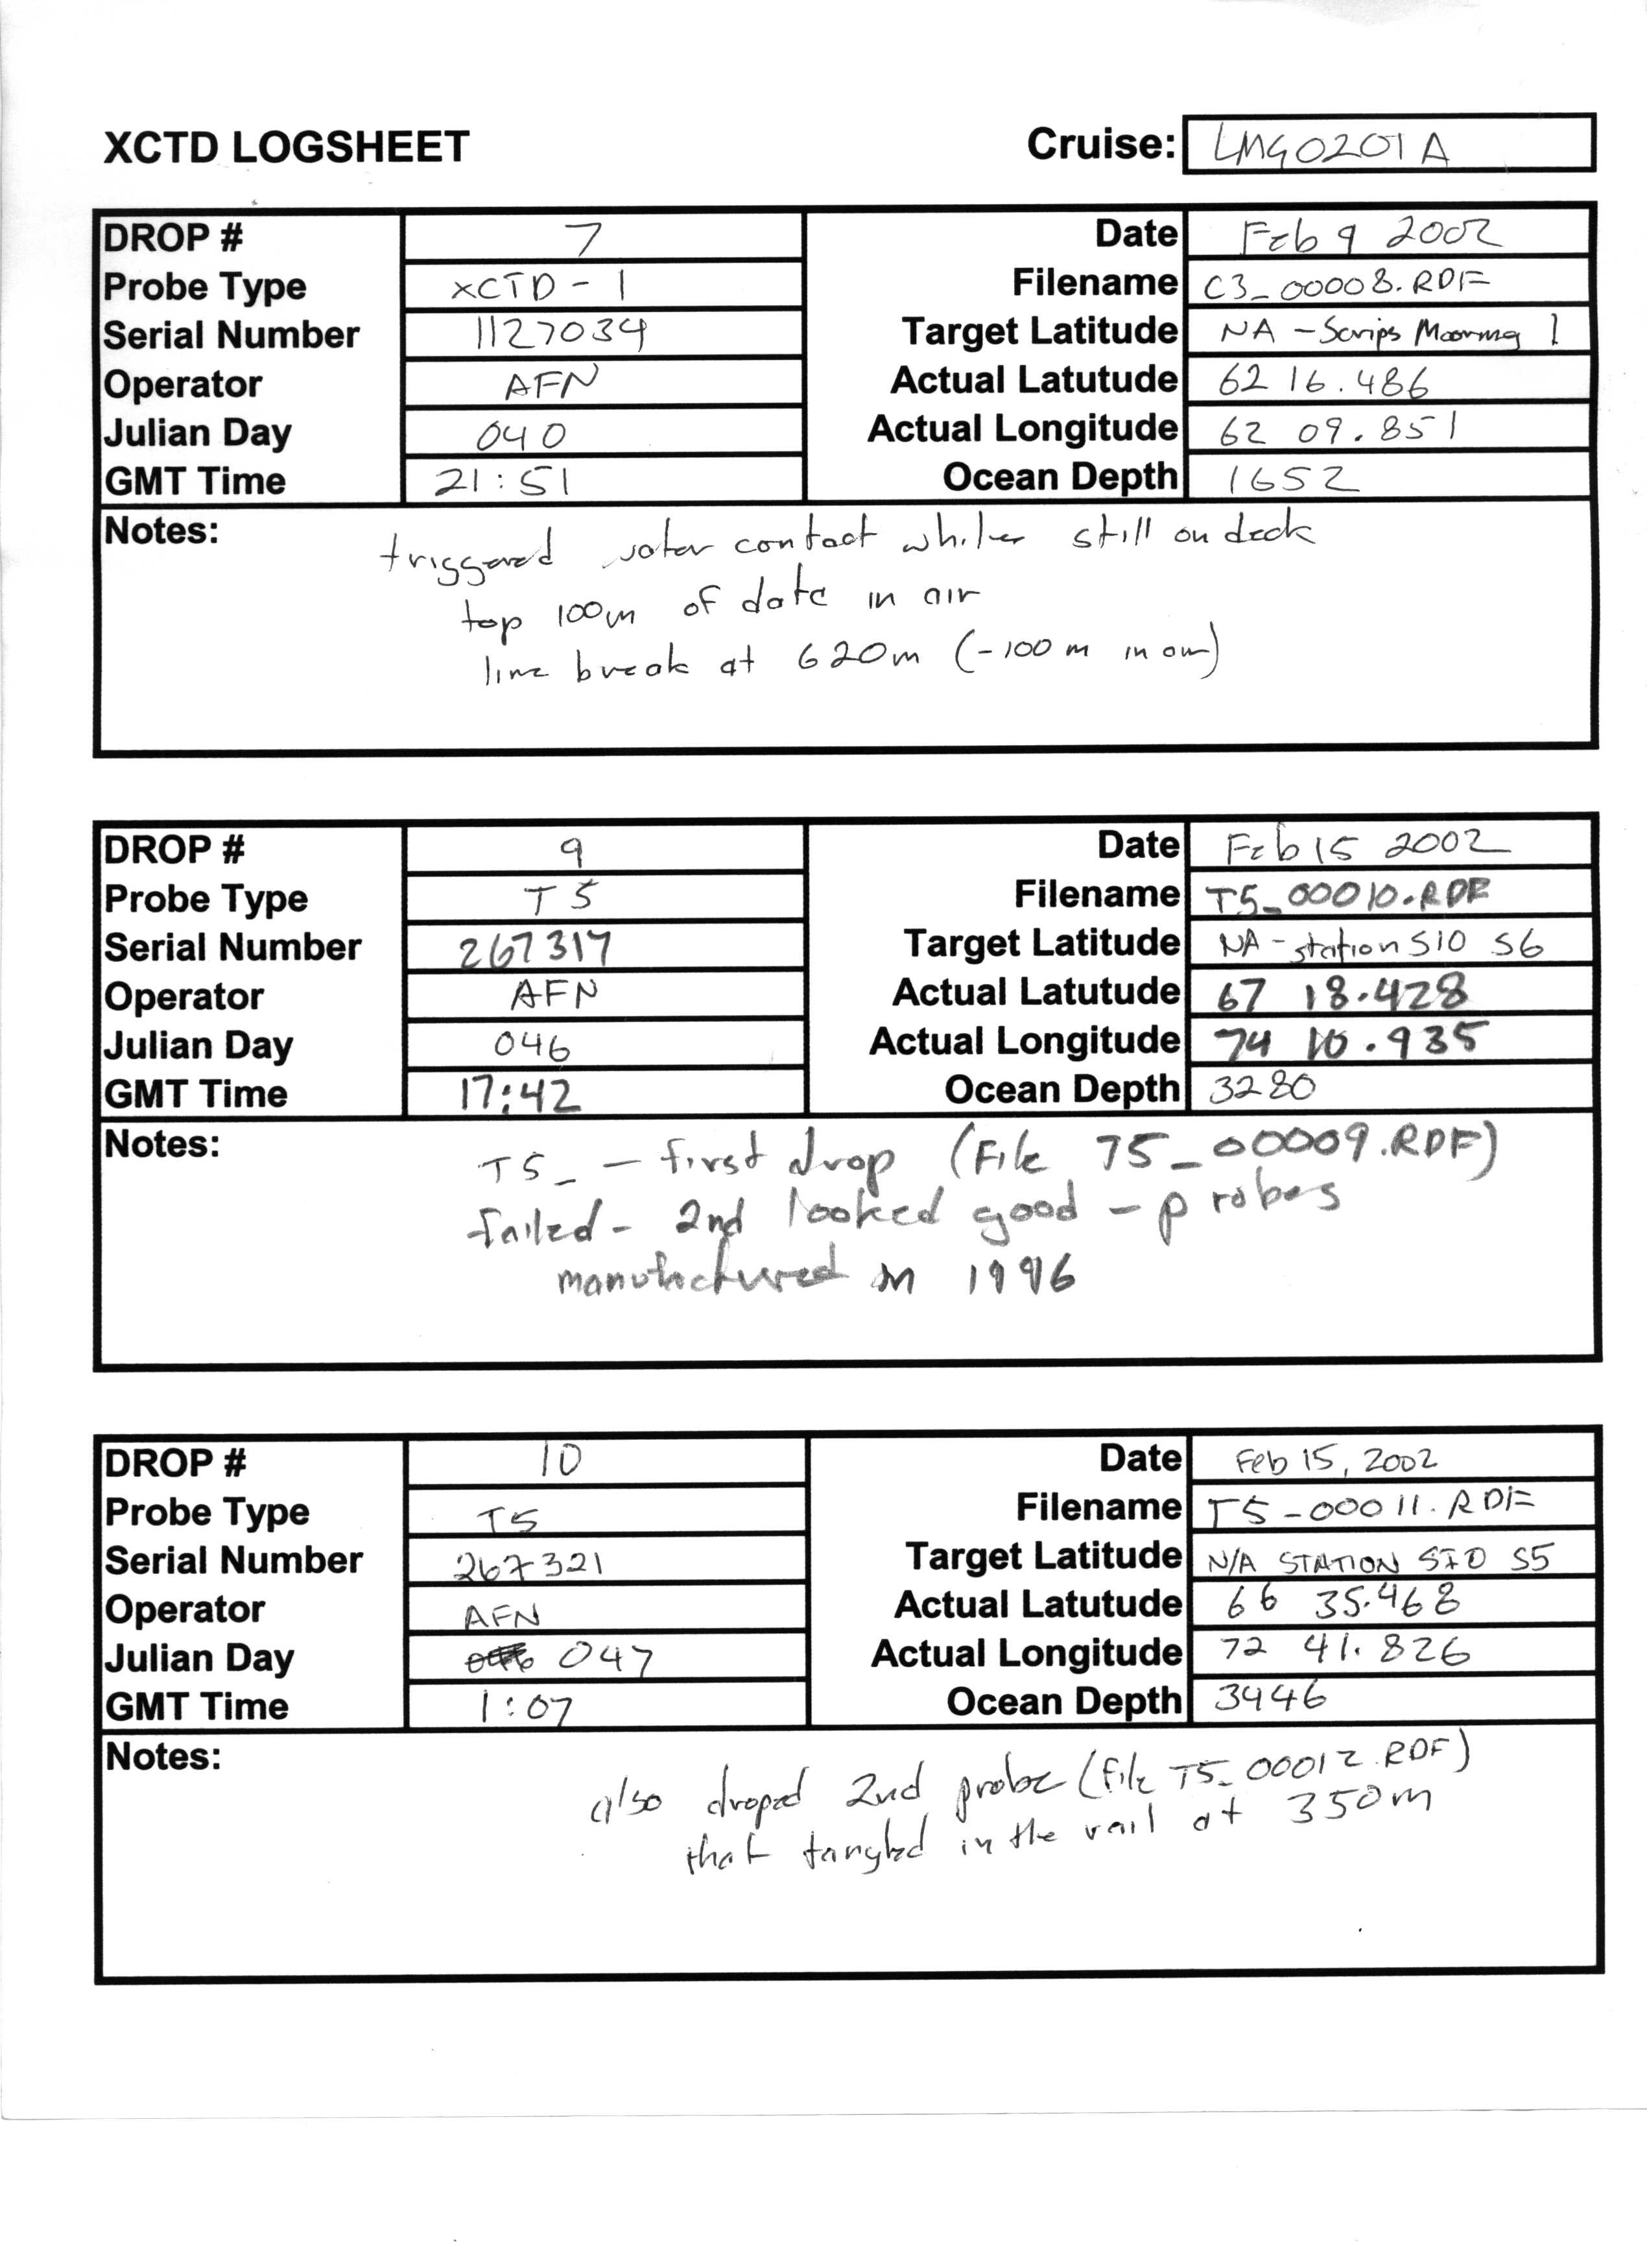 XCTD LOGSHEET Cruise: LMG0201A
DROP # 7 Date Feb 9 2002
Probe Type XCTD-1 Filename C3_00008.RDF
Serial Number 1127034 Target Latitude NA - Scrips Mooring 1
Operator AFN Actual Latutude 62 16.486
Julian Day 040 Actual Longitude 62 09.851
GMT Time 21:51 Ocean Depth 1652
Notes: triggered water contact while still on deck
top 100m of data in air
line break at 620m (-100 m in air)
DROP # 9 Date Feb 15 2002
Probe Type T5 Filename T5_00010.RDF
Serial Number 267317 Target Latitude NA - station SIO S6
Operator AFN Actual Latutude 67 18.428
Julian Day 046 Actual Longitude 74 10.935
GMT Time 17:42 Ocean Depth 3280
Notes: T5_ - first drop (File T5_00009.RDF)
failed - 2nd looked good - probes
manufactured in 1996
DROP # 10 Date Feb 15, 2002
Probe Type T5 Filename T5-00011.RDF
Serial Number 267321 Target Latitude N/A STATION SIO S5
Operator AFN Actual Latutude 66 35.468
Julian Day 047 Actual Longitude 72 41.826
GMT Time 1:07 Ocean Depth 3446
Notes: also droped 2nd probe (file T5_00012.RDF)
that tangled in the rail at 350m